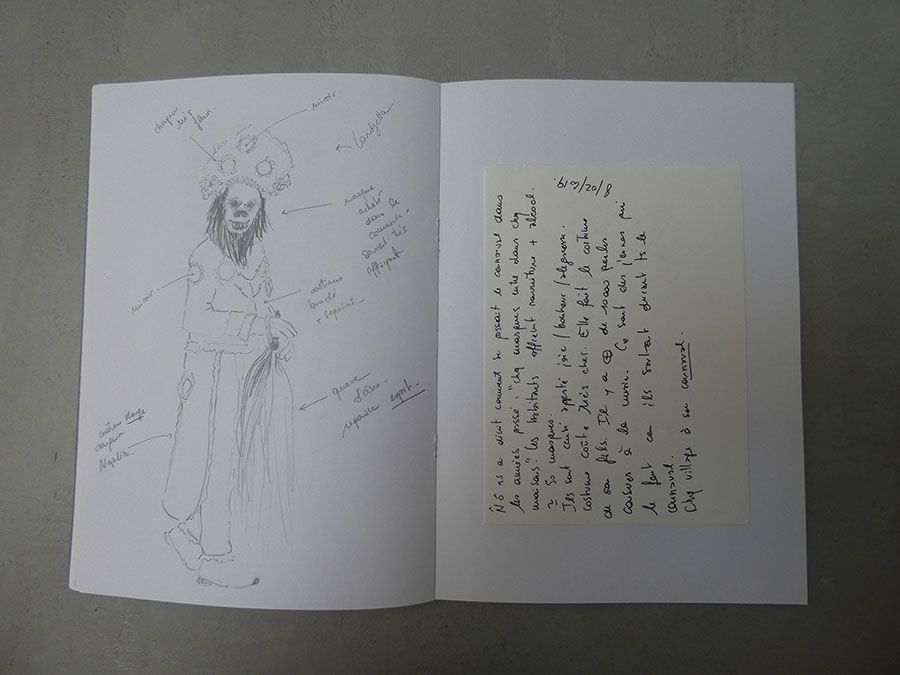 chapeau
très
fleuri
miroir.
masque
acheté
dans le
commerce.
Souvent très
effrayant
miroir
costume
brodé
+ sequins
queue
d'âne.
repousse esprit.
costume Rouge
ns a décrit comment se passait le carnaval dans
les années passé : "chq masques entre dans chq
maisons" les habitants offrent nourriture + alcool.
≃ 50 masques.
Ils sont censé apporté joie / bonheur /
costume coûte très cher. Elle fait le costume
de son fils. Il y a ⊕ de perles
cousues à la main. Ce sont des jeunes qui
le font car ils sortent durant ts le
carnaval.
Chq village à son carnaval.